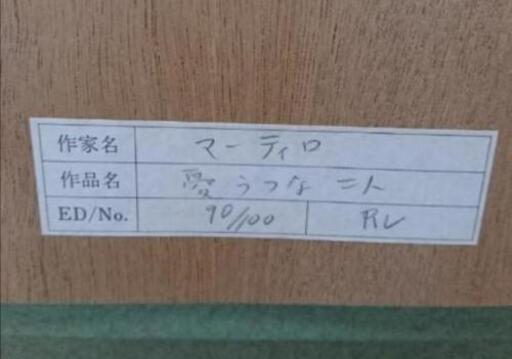 作家名 マーティロ
作品名 愛うつな二人
ED/No. 90/100 RV